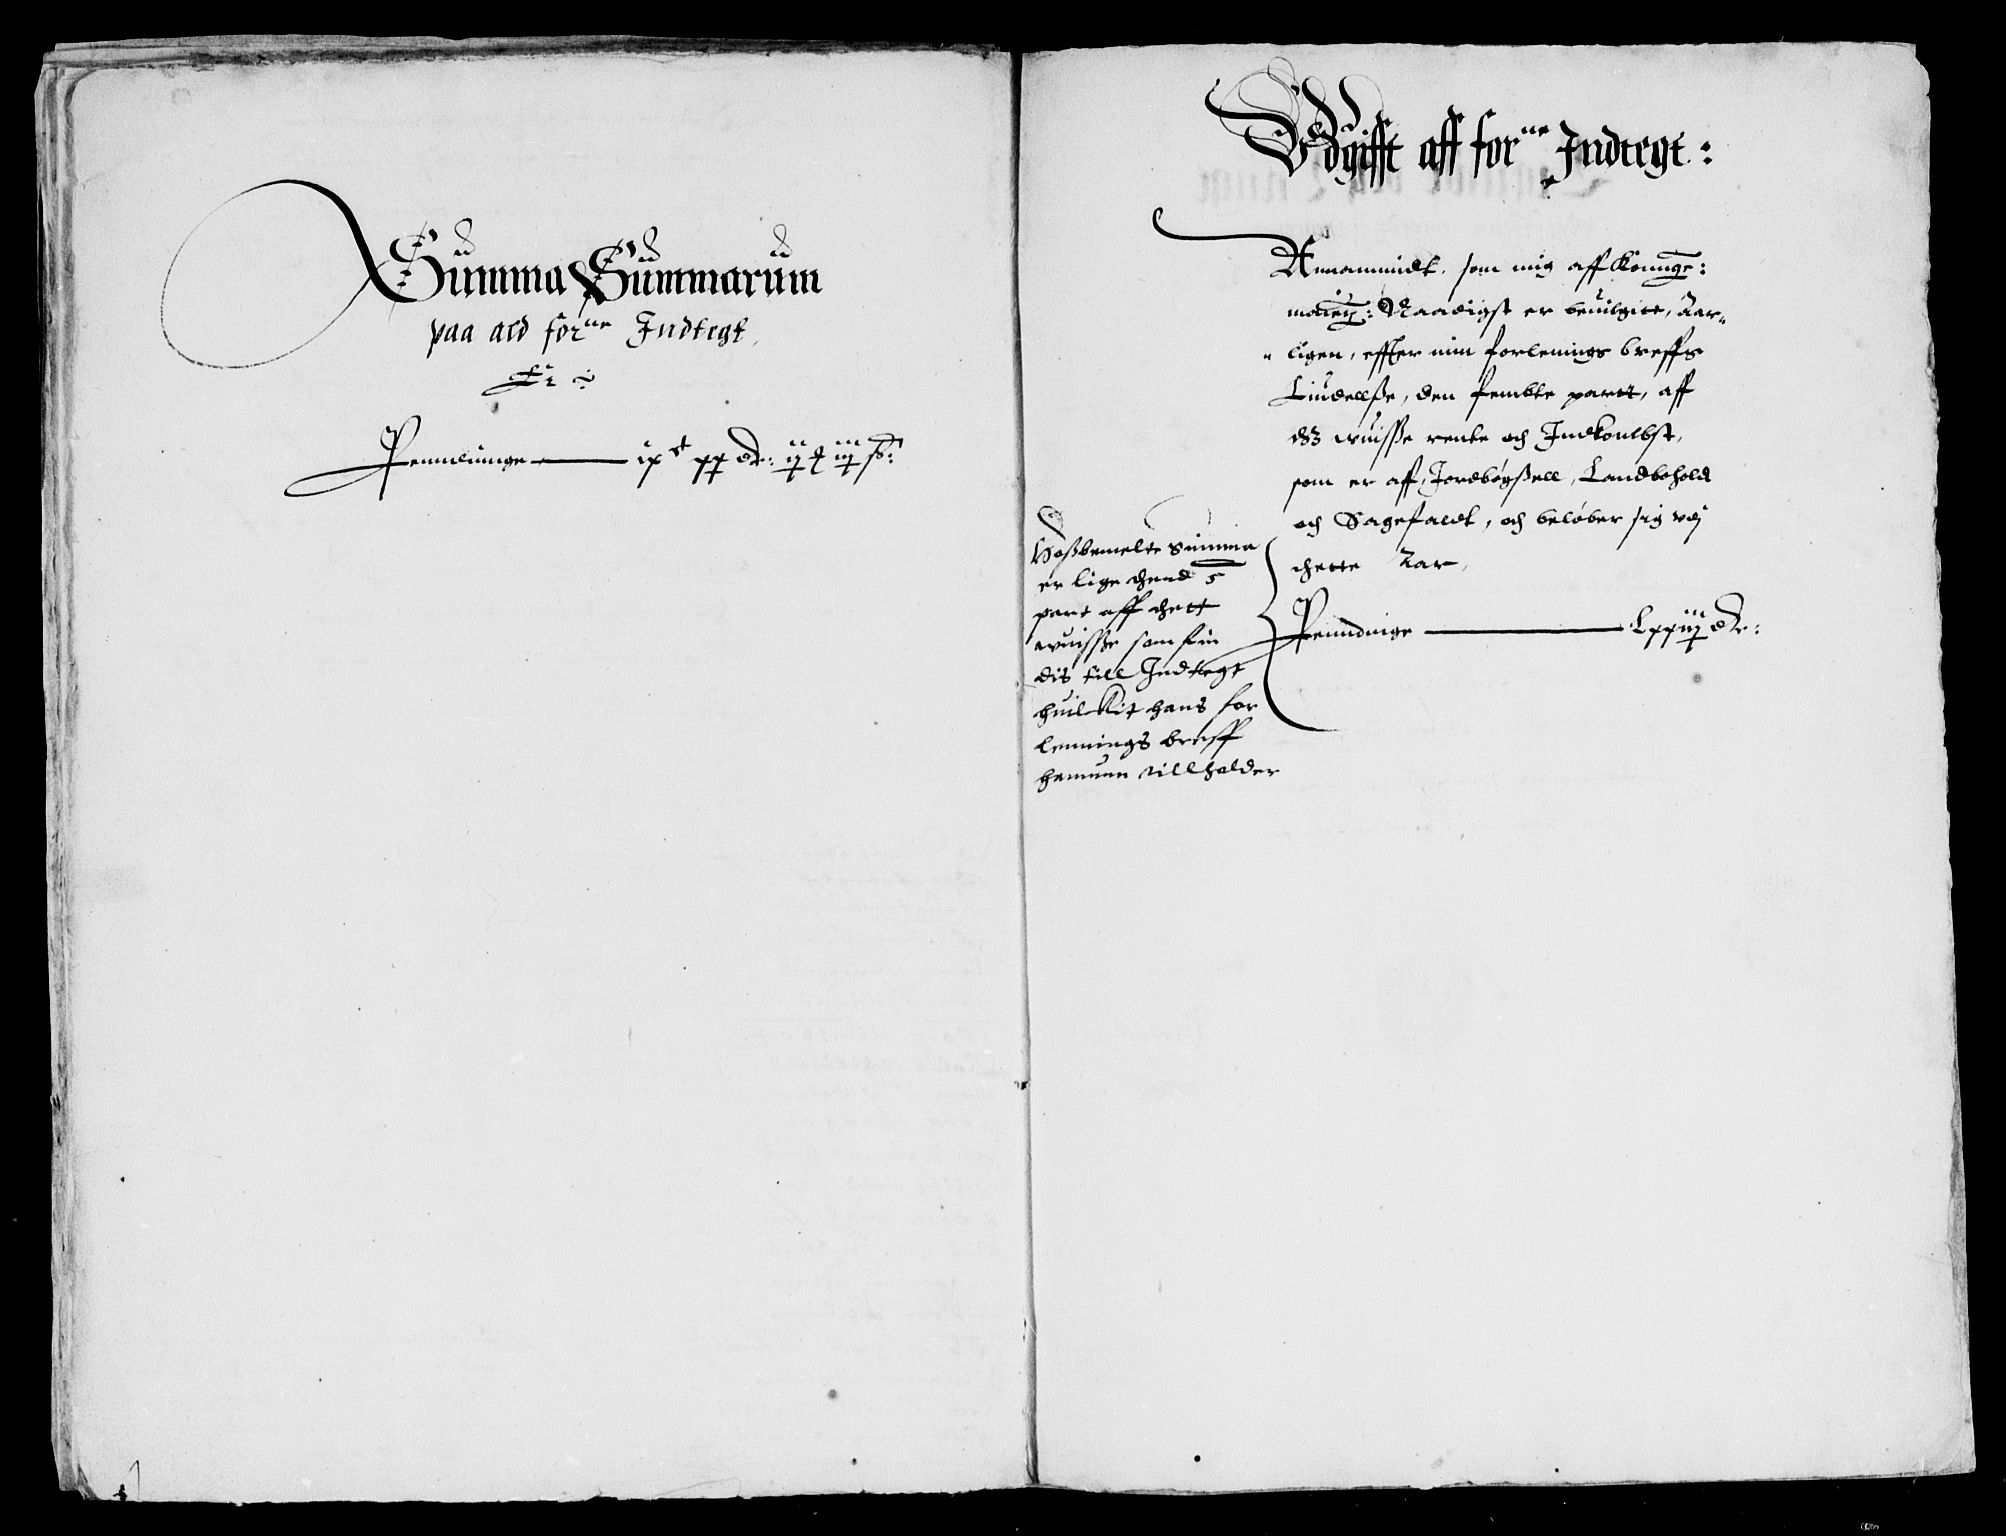 Summa Summarum
paa ald for:ne Indtegt
Er
Penndinnge — ixc xx dr: ij t iiij s:
Vdgifft aff for:ne Indtegt:
Annammidt som mig aff Konnge:
mattz: Naadigst er beuilgitt, Aar-
ligen, effter min forlenings breffs
Liudellsze, den fembte partt, aff
des wuisse rente och Indkombst,
som er aff, Jordbøgszell, Landbohold
och Sagefaldt, och beløber sig vdj
thette Aar,
Penndinge — Lxxiiij dr:
Hoszbemelte Summa
er lige thend 5
part aff thett
wuisse som fin
dis till Indtegt
huilckit hans for
lennings breff
hannum tillholder